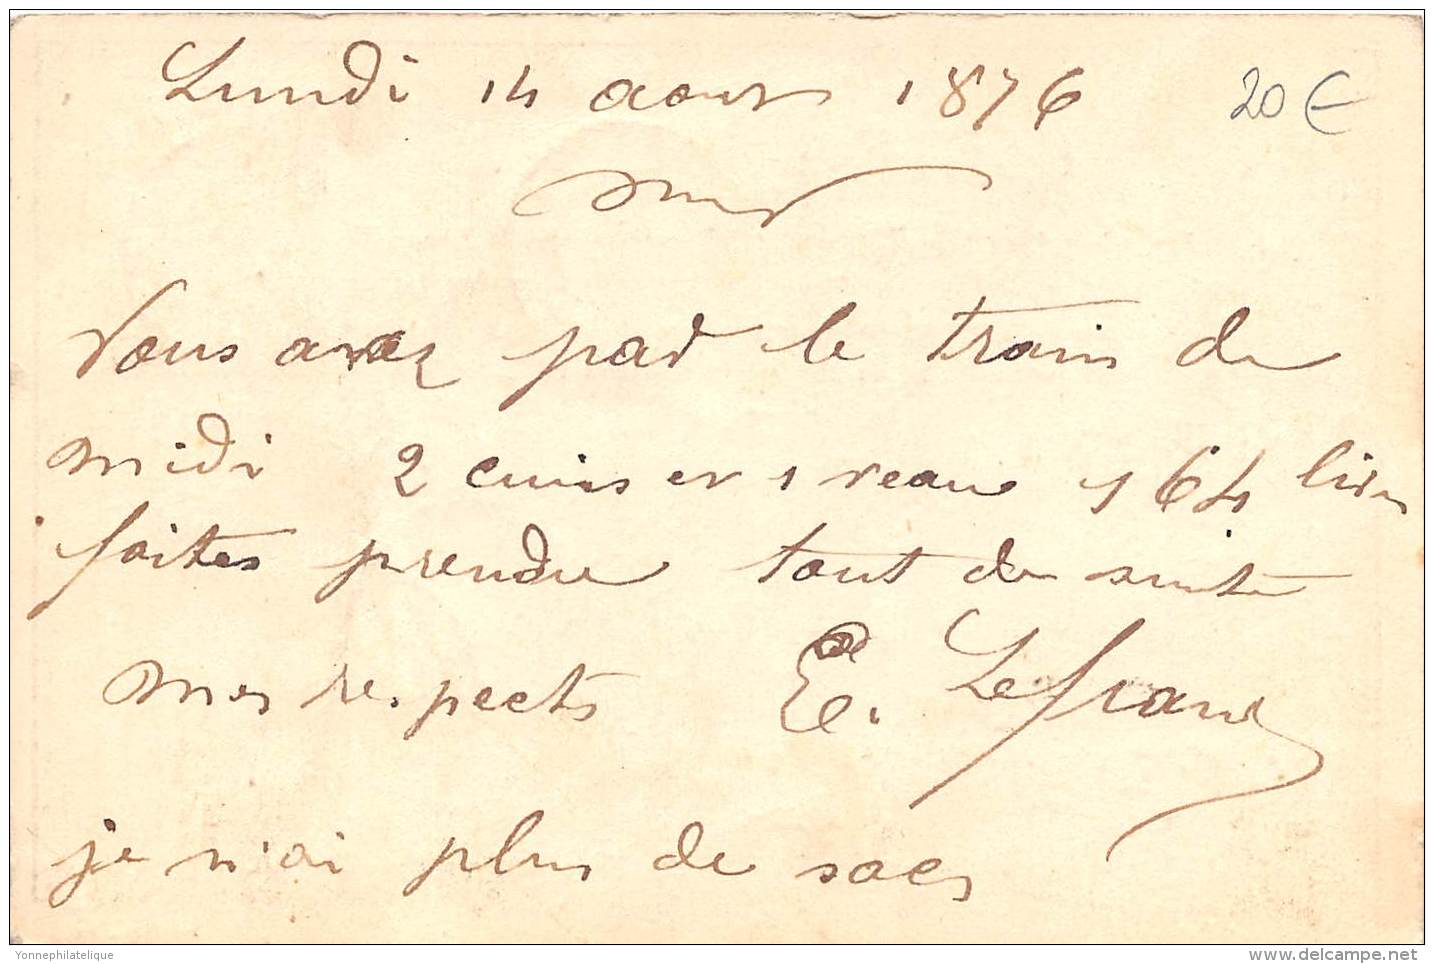 Lundi 14 aout 1876
20€
Vous avez par le train de
midi 2 cuirs et 1 veau 164 livres
faites prendre tout de suite
mes respects E. Lefranc
je n'ai plus de sacs
Yonnephilatelique
www.delcampe.net